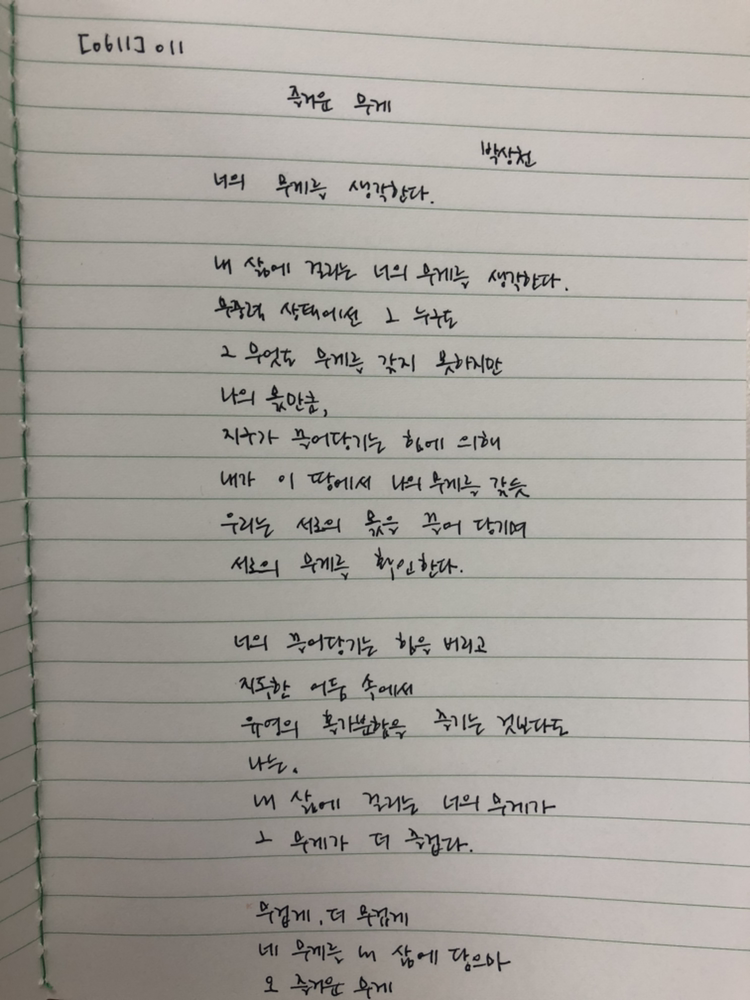 [0611] 011
즐거운 무게
박상천
너의 무게를 생각한다.
내 삶에 걸리는 너의 무게를 생각한다.
무중력 상태에선 그 누구도
그 무엇도 무게를 갖지 못하지만
나의 몫만큼,
지구가 끌어당기는 힘에 의해
내가 이 땅에서 나의 무게를 갖듯
우리는 서로의 몫을 끌어 당기며
서로의 무게를 확인한다.
너의 끌어당기는 힘을 버리고
지독한 어둠 속에서
유영의 홀가분함을 즐기는 것보다도
나는.
내 삶에 걸리는 너의 무게가
그 무게가 더 즐겁다.
무겁게, 더 무겁게
네 무게를 내 삶에 담으마
오 즐거운 무게